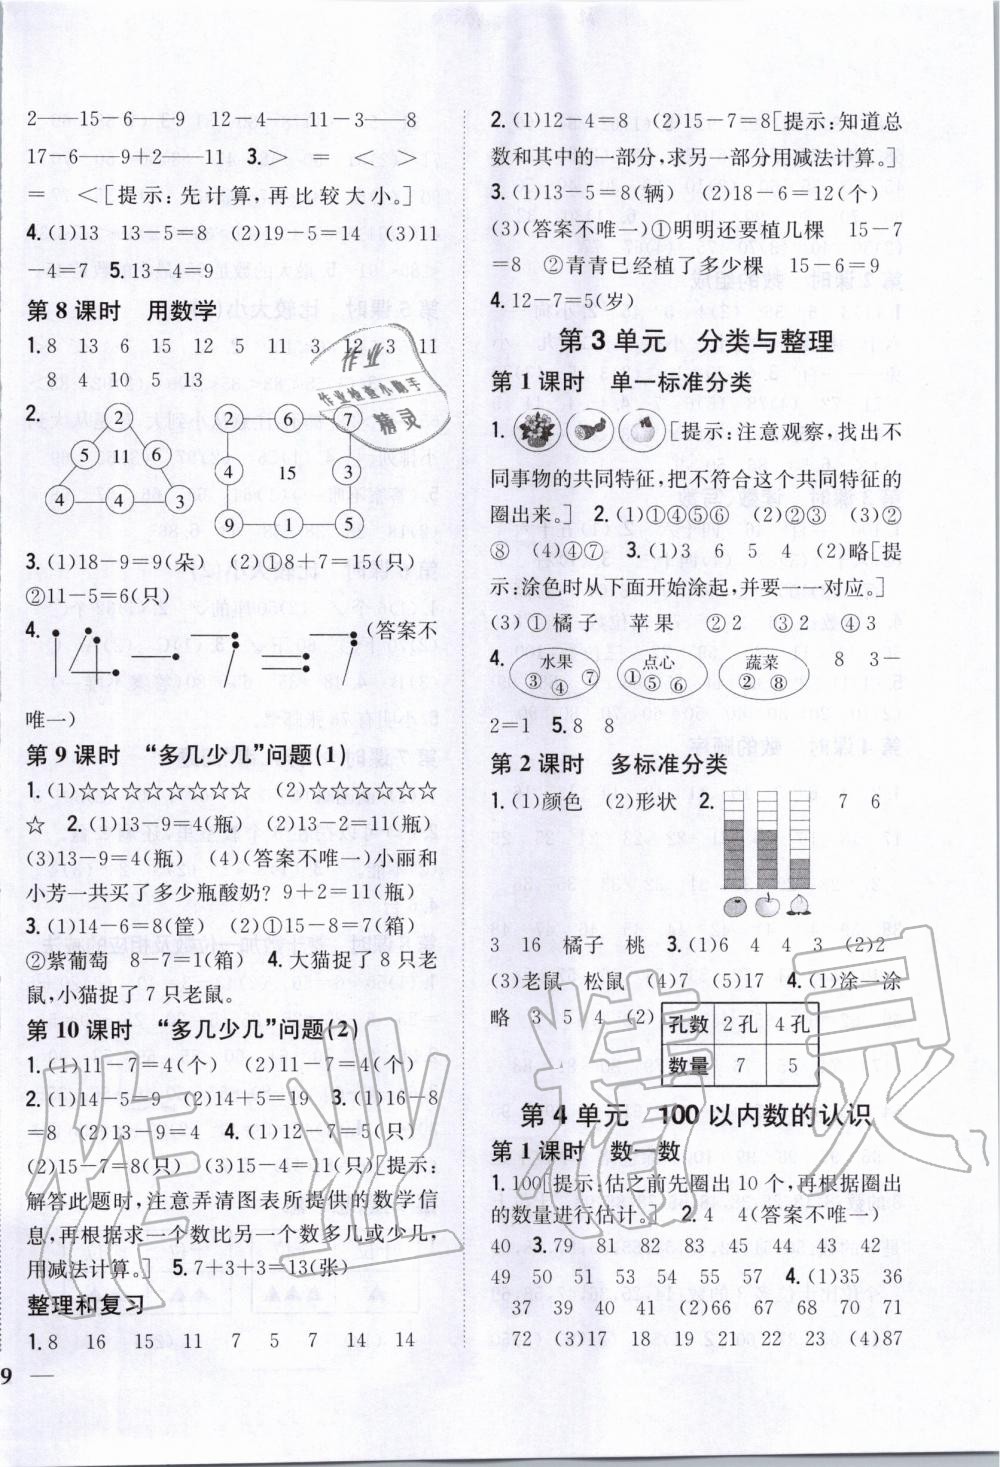 2——15—6——9 12—4——11—3——8
17—6——9+2——11 3.> = < >
= <[提示:先计算,再比较大小。]
4.(1)13 13-5=8 (2)19-5=14 (3)11
-4=7 5.13-4=9
第8课时 用数学
1.8 13 6 15 12 5 11 3 12 3 11
8 4 10 5 13
2.
2
5 11 6
4 4 3
2 6 7
4 15 3
9 1 5
3.(1)18-9=9(朵) (2)①8+7=15(只)
②11-5=6(只)
4.
(答案不
唯一)
第9课时 “多几少几”问题(1)
1.(1)☆☆☆☆☆☆☆☆☆ (2)☆☆☆☆☆☆
☆ 2.(1)13-9=4(瓶) (2)13-2=11(瓶)
(3)13-9=4(瓶) (4)(答案不唯一)小丽和
小芳一共买了多少瓶酸奶? 9+2=11(瓶)
3.(1)14-6=8(筐) (2)①15-8=7(箱)
②紫葡萄 8-7=1(箱) 4.大猫捉了8只老
鼠,小猫捉了7只老鼠。
第10课时 “多几少几”问题(2)
1.(1)11-7=4(个) (2)11-7=4(个)
2.(1)14-5=9 (2)14+5=19 3.(1)16-8
=8 (2)13-9=4 4.(1)12-7=5(只)
(2)15-7=8(只) (3)15-4=11(只)[提示:
解答此题时,注意弄清图表所提供的数学信
息,再根据求一个数比另一个数多几或少几,
用减法计算。] 5.7+3+3=13(张)
整理和复习
1.8 16 15 11 7 5 7 14 14
9 —
2.(1)12-4=8 (2)15-7=8[提示:知道总
数和其中的一部分,求另一部分用减法计算。]
3.(1)13-5=8(辆) (2)18-6=12(个)
(3)(答案不唯一)①明明还要植几棵 15-7
=8 ②青青已经植了多少棵 15-6=9
4.12-7=5(岁)
第3单元 分类与整理
第1课时 单一标准分类
1.
[提示:注意观察,找出不
同事物的共同特征,把不符合这个共同特征的
圈出来。] 2.(1)①④⑤⑥ (2)②③ (3)②
⑧ (4)④⑦ 3.(1)3 6 5 4 (2)略[提
示:涂色时从下面开始涂起,并要一一对应。]
(3)①橘子 苹果 ②2 ③2 ④3
4.
水果
③④⑦
点心
①⑤⑥
蔬菜
②⑧
8 3-
2=1 5.8 8
第2课时 多标准分类
1.(1)颜色 (2)形状 2.
7 6
3 16 橘子 桃 3.(1)6 4 4 3 (2)2
(3)老鼠 松鼠 (4)7 (5)17 4.(1)涂一涂
略 3 5 4 (2)
孔数 2孔 4孔
数量 7 5
第4单元 100以内数的认识
第1课时 数一数
1.100[提示:估之前先圈出10个,再根据圈出
的数量进行估计。] 2.4 4(答案不唯一)
40 3.79 81 82 83 45 44 43 42
49 50 51 53 54 55 57 4.(1)35 36
37 39 40 41 (2)66 67 68 70 71
72 (3)17 18 19 21 22 23 (4)87
作业检查小助手
精灵
作业精灵